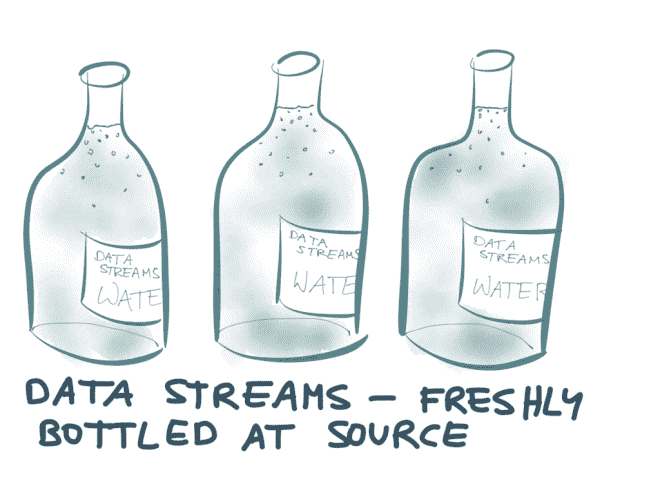 DATA
STREAMS
WATE
DATA
STREAMS
WATE
DATA
STREAMS
WATER
DATA STREAMS — FRESHLY
BOTTLED AT SOURCE